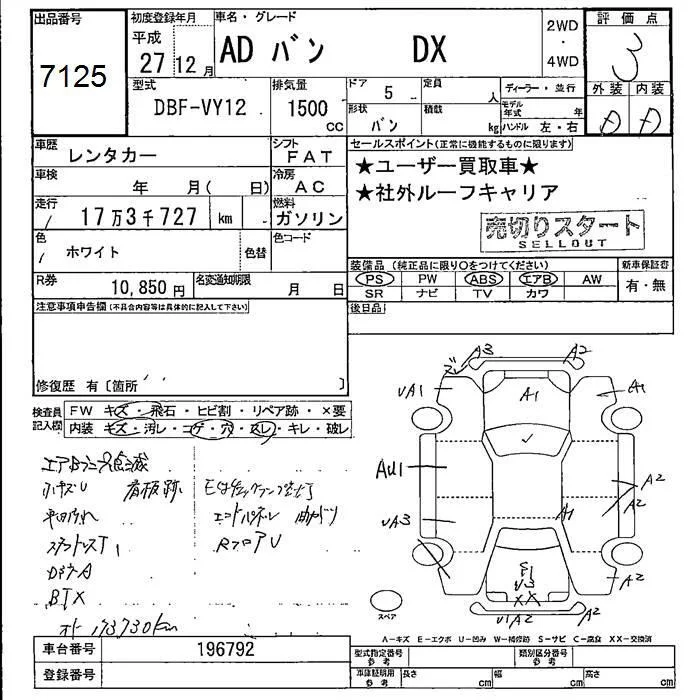 出品番号
7125
初度登録年月
平成
27 12月
車名・グレード
AD バン DX
2WD
・
4WD
評価点
3
外装 内装
型式
DBF-VY12
排気量
1500
CC
ドア
5
定員
人
形状
バン
積載
kg
ディーラー・並行
モデル年式 年
ハンドル 左・右
車歴
レンタカー
シフト
FAT
車検
年 月( 日)
冷房
AC
走行
17万3千727 km
燃料
ガソリン
色
ホワイト
色替
色コード
R券
10,850 円
名変通知期限
月 日
セールスポイント(正常に機能するものに限ります)
★ユーザー買取車★
★社外ルーフキャリア
売切りスタート
SELLOUT
装備品 (純正品に限り○をつけてください)
PS PW ABS エアB AW
SR ナビ TV カワ
新車保証書
有・無
後日品
注意事項申告欄(不具合内容等は具体的に記入して下さい)
修復歴 有〔箇所 〕
検査員記入欄
FW キズ・飛石・ヒビ割・リペア跡・×要
内装 キズ・汚レ・コゲ・穴・スレ・キレ・破レ
看板跡
エンドパネル 曲がり
RフロアU
173730km
A3 A2
UA1 A1 A1
AU1
A2
UA3 A1
E1
U3
XX
A2
UA2 A2
スペア
A−キズ E−エクボ U−凹み W−補修跡 S−サビ C−腐食 XX−交換済
車台番号
196792
登録番号
型式指定番号
参考
類別区分番号
参考
車庫証明用
参考
長さ cm
幅 cm
高さ cm